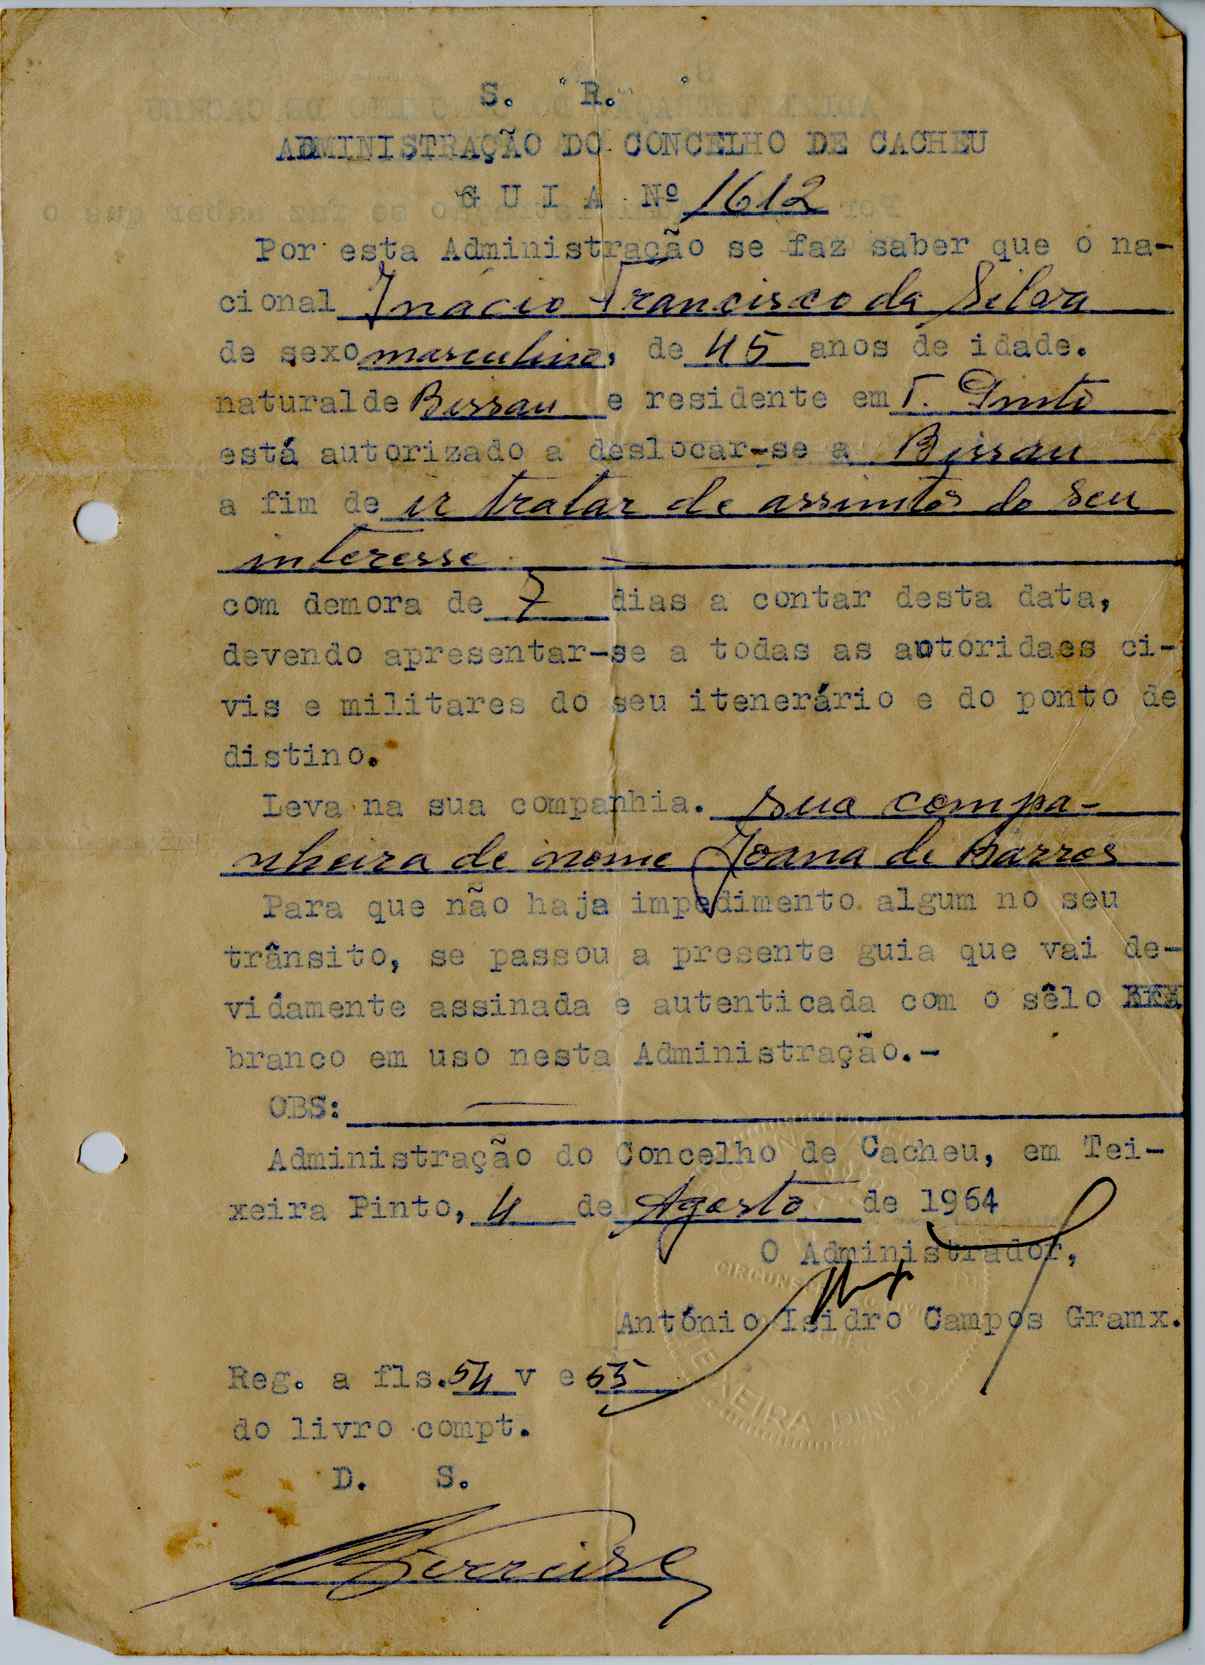 S. R.
ADMINISTRAÇÃO DO CONCELHO DE CACHEU
G U I A Nº 1612
Por esta Administração se faz saber que o na-
cional Inácio Francisco da Silva
de sexo masculino, de 45 anos de idade.
natural de Bissau e residente em T. Pinto
está autorizado a deslocar-se a Bissau
a fim de ir tratar de assuntos do seu
interesse
com demora de 7 dias a contar desta data,
devendo apresentar-se a todas as autoridaes ci-
vis e militares do seu itenerário e do ponto de
distino.
Leva na sua companhia. sua compa-
nheira de nome Joana de Barros
Para que não haja impedimento algum no seu
trânsito, se passou a presente guia que vai de-
vidamente assinada e autenticada com o sêlo
branco em uso nesta Administração.-
OBS:
Administração do Concelho de Cacheu, em Tei-
xeira Pinto, 4 de Agosto de 1964
O Administrador,
CIRCUNS
António Isidro Campos Gramx.
TEIXEIRA PINTO
Reg. a fls. 54 v e 55
do livro compt.
D. S.